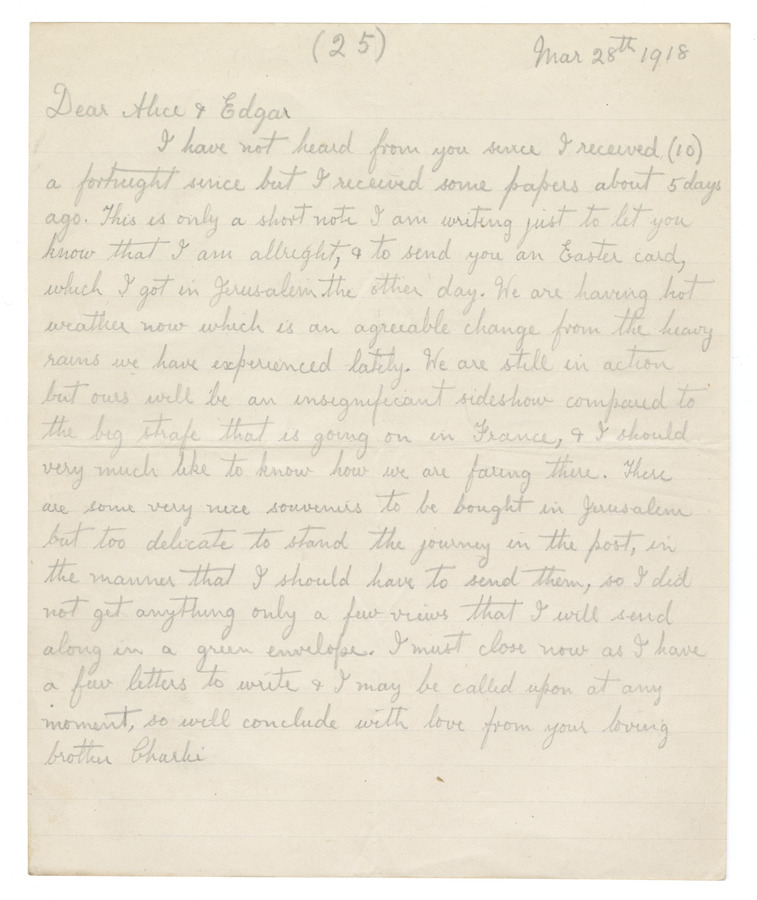 (25)
Mar 28th 1918
Dear Alice & Edgar
I have not heard from you since I received (10)
a fortnight since but I received some papers about 5 days
ago. This is only a short note I am writing just to let you
know that I am allright, & to send you an Easter card,
which I got in Jerusalem the other day. We are having hot
weather now which is an agreeable change from the heavy
rains we have experienced lately. We are still in action
but ours will be an insignificant sideshow compared to
the big strafe that is going on in France, & I should
very much like to know how we are faring there. There
are some very nice souvenirs to be bought in Jerusalem
but too delicate to stand the journey in the post, in
the manner that I should have to send them, so I did
not get anything only a few views that I will send
along in a green envelope. I must close now as I have
a few letters to write & I may be called upon at any
moment, so will conclude with love from your loving
brother Charlie